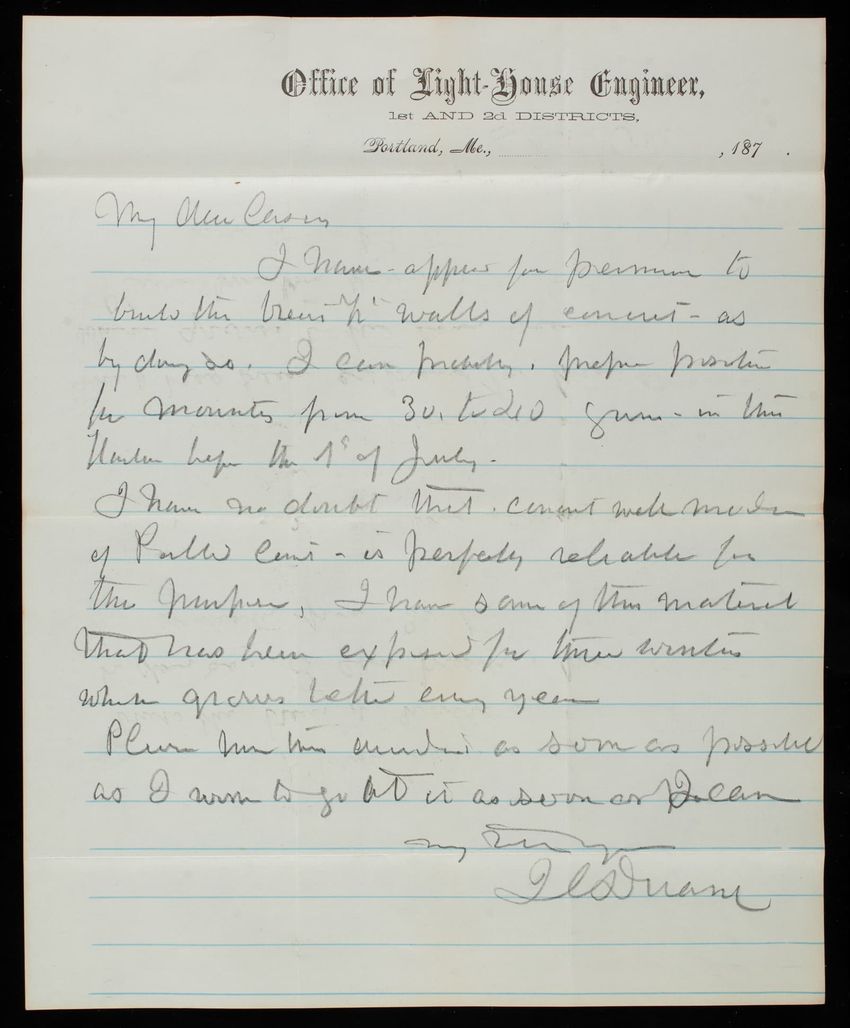 Office of Light-House Engineer,
1st AND 2d DISTRICTS,
Portland, Me., , 187 .
My dear Casey
I have applied for permission to
build the breast walls of concrete as
by doing so. I can probably. prepare positions
for mounting from 30. to 40 guns - in this
Harbor before the 1st of July -
I have no doubt that. concrete well made
of Portland Cement - is perfectly reliable for
the purpose, I have some of this material
that has been exposed for three winters
which grows better every year
Please have this decided as soon as possible
as I wish to go at it as soon as I can
Very Truly yours
J C Duane